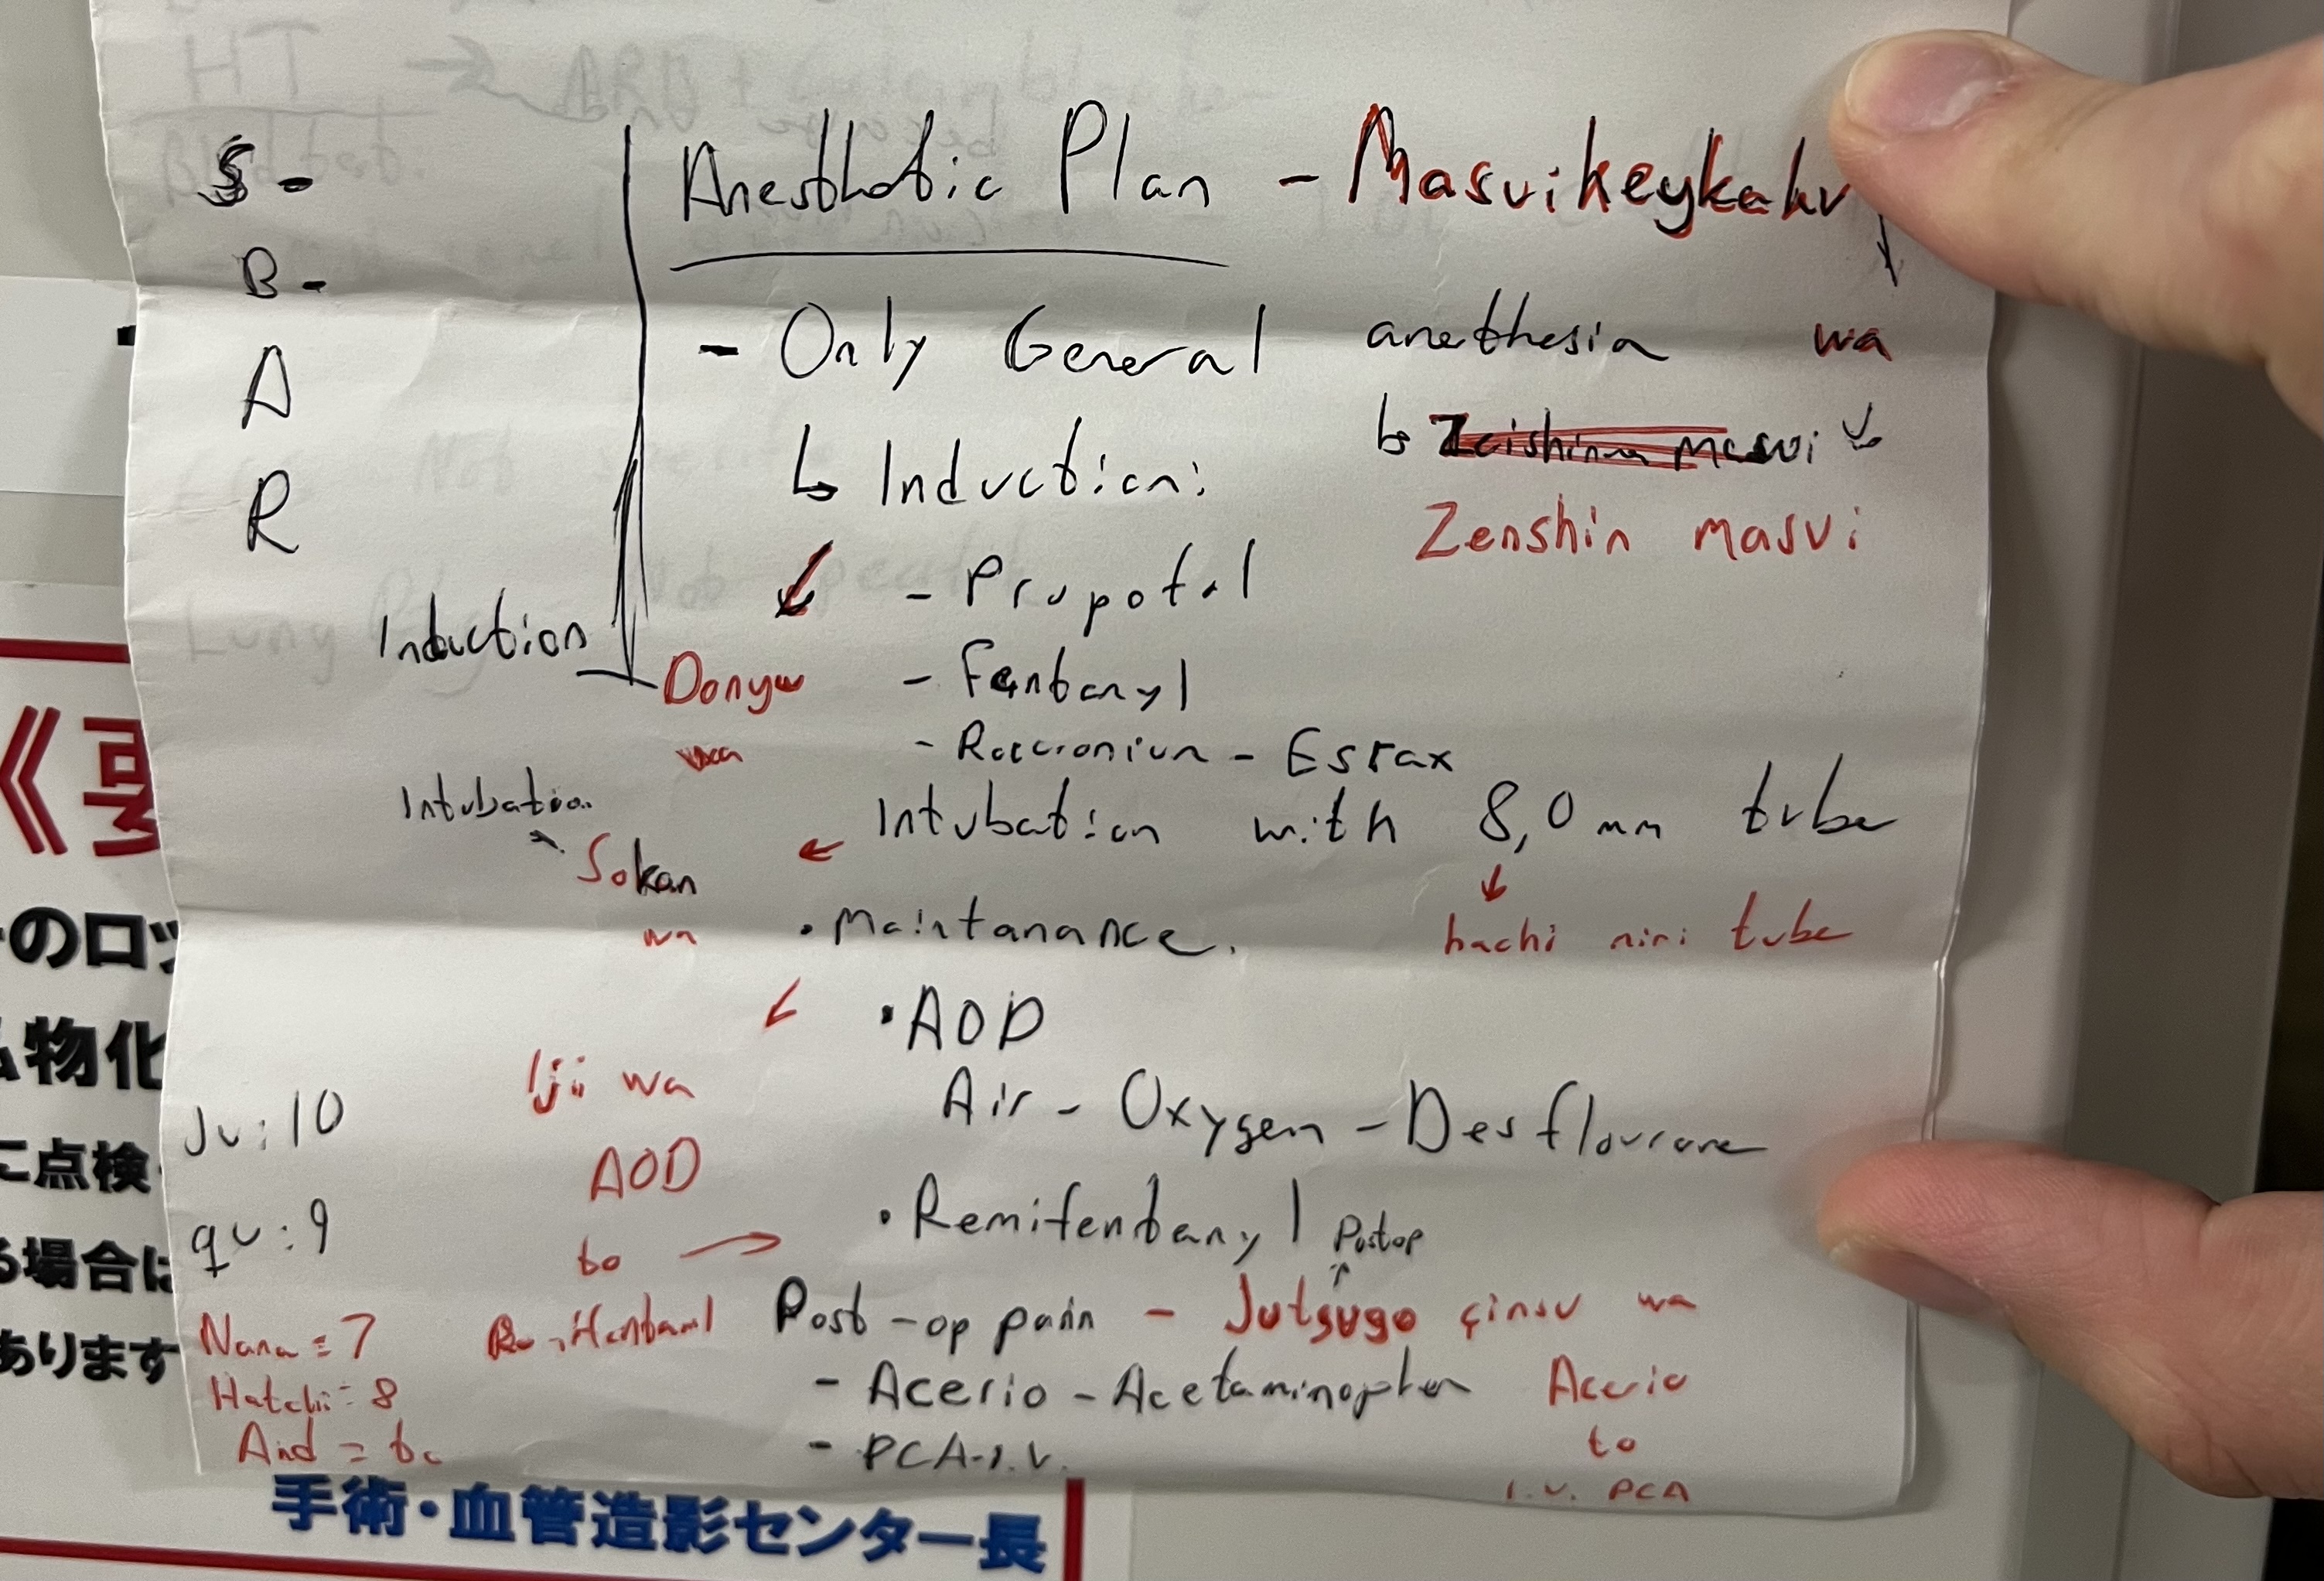 S-
B-
A
R
Anesthetic Plan - Masuikeykaku
- Only General anethesia wa
↳ Induction:
Zenshin masui
- Propofol
Induction
Donyu
wa
- Fentanyl
- Roccroniun - Esrax
Intubation
Intubation with 8,0 mm tube
Sokan
wa
hachi miri tube
• Maintanance.
• AOD
Iji wa
AOD
to
Air - Oxygen - Desflourane
Ju: 10
qu: 9
• Remifentanyl
Postop
Post-op pain - Jutsugo çinsu wa
Nana = 7
Hatchi = 8
And = to
- Acerio - Acetaminophen
Acerio
to
I.V. PCA
- PCA-I.V.
のロッ
物化
に点検
場合は
あります
手術・血管造影センター長